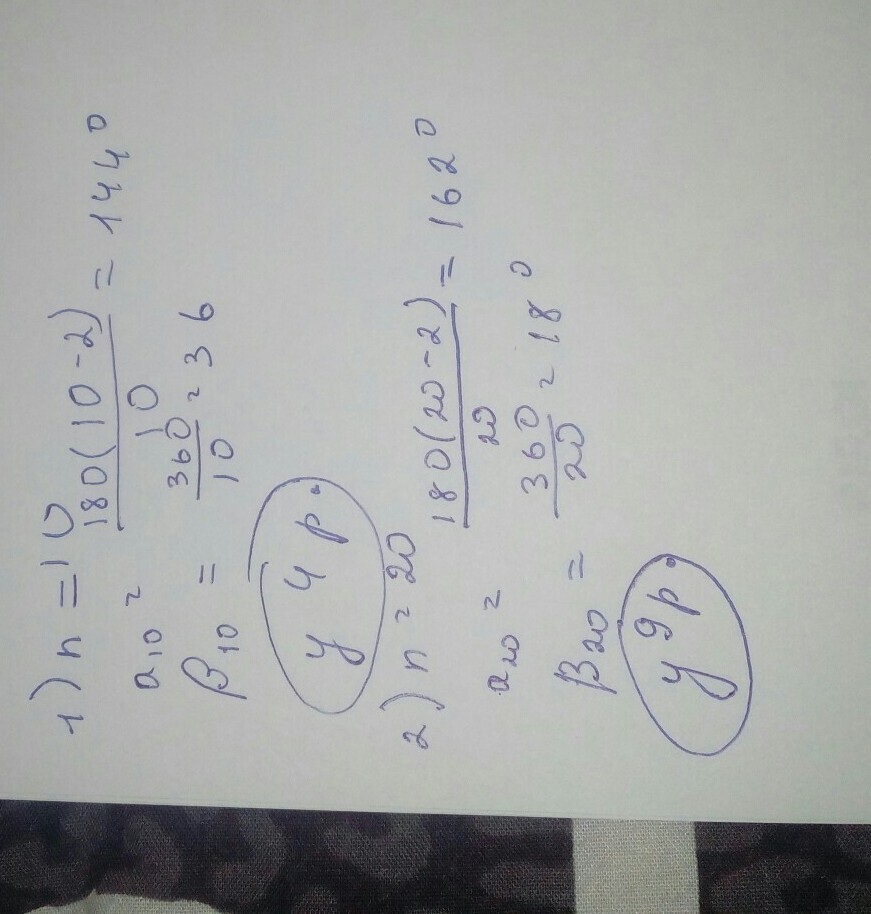 1) n = 10
a10 = 180(10-2)/10 = 144°
β10 = 360/10 = 36
у 4 р.
2) n = 20
a20 = 180(20-2)/20 = 162°
β20 = 360/20 = 18°
у 9 р.